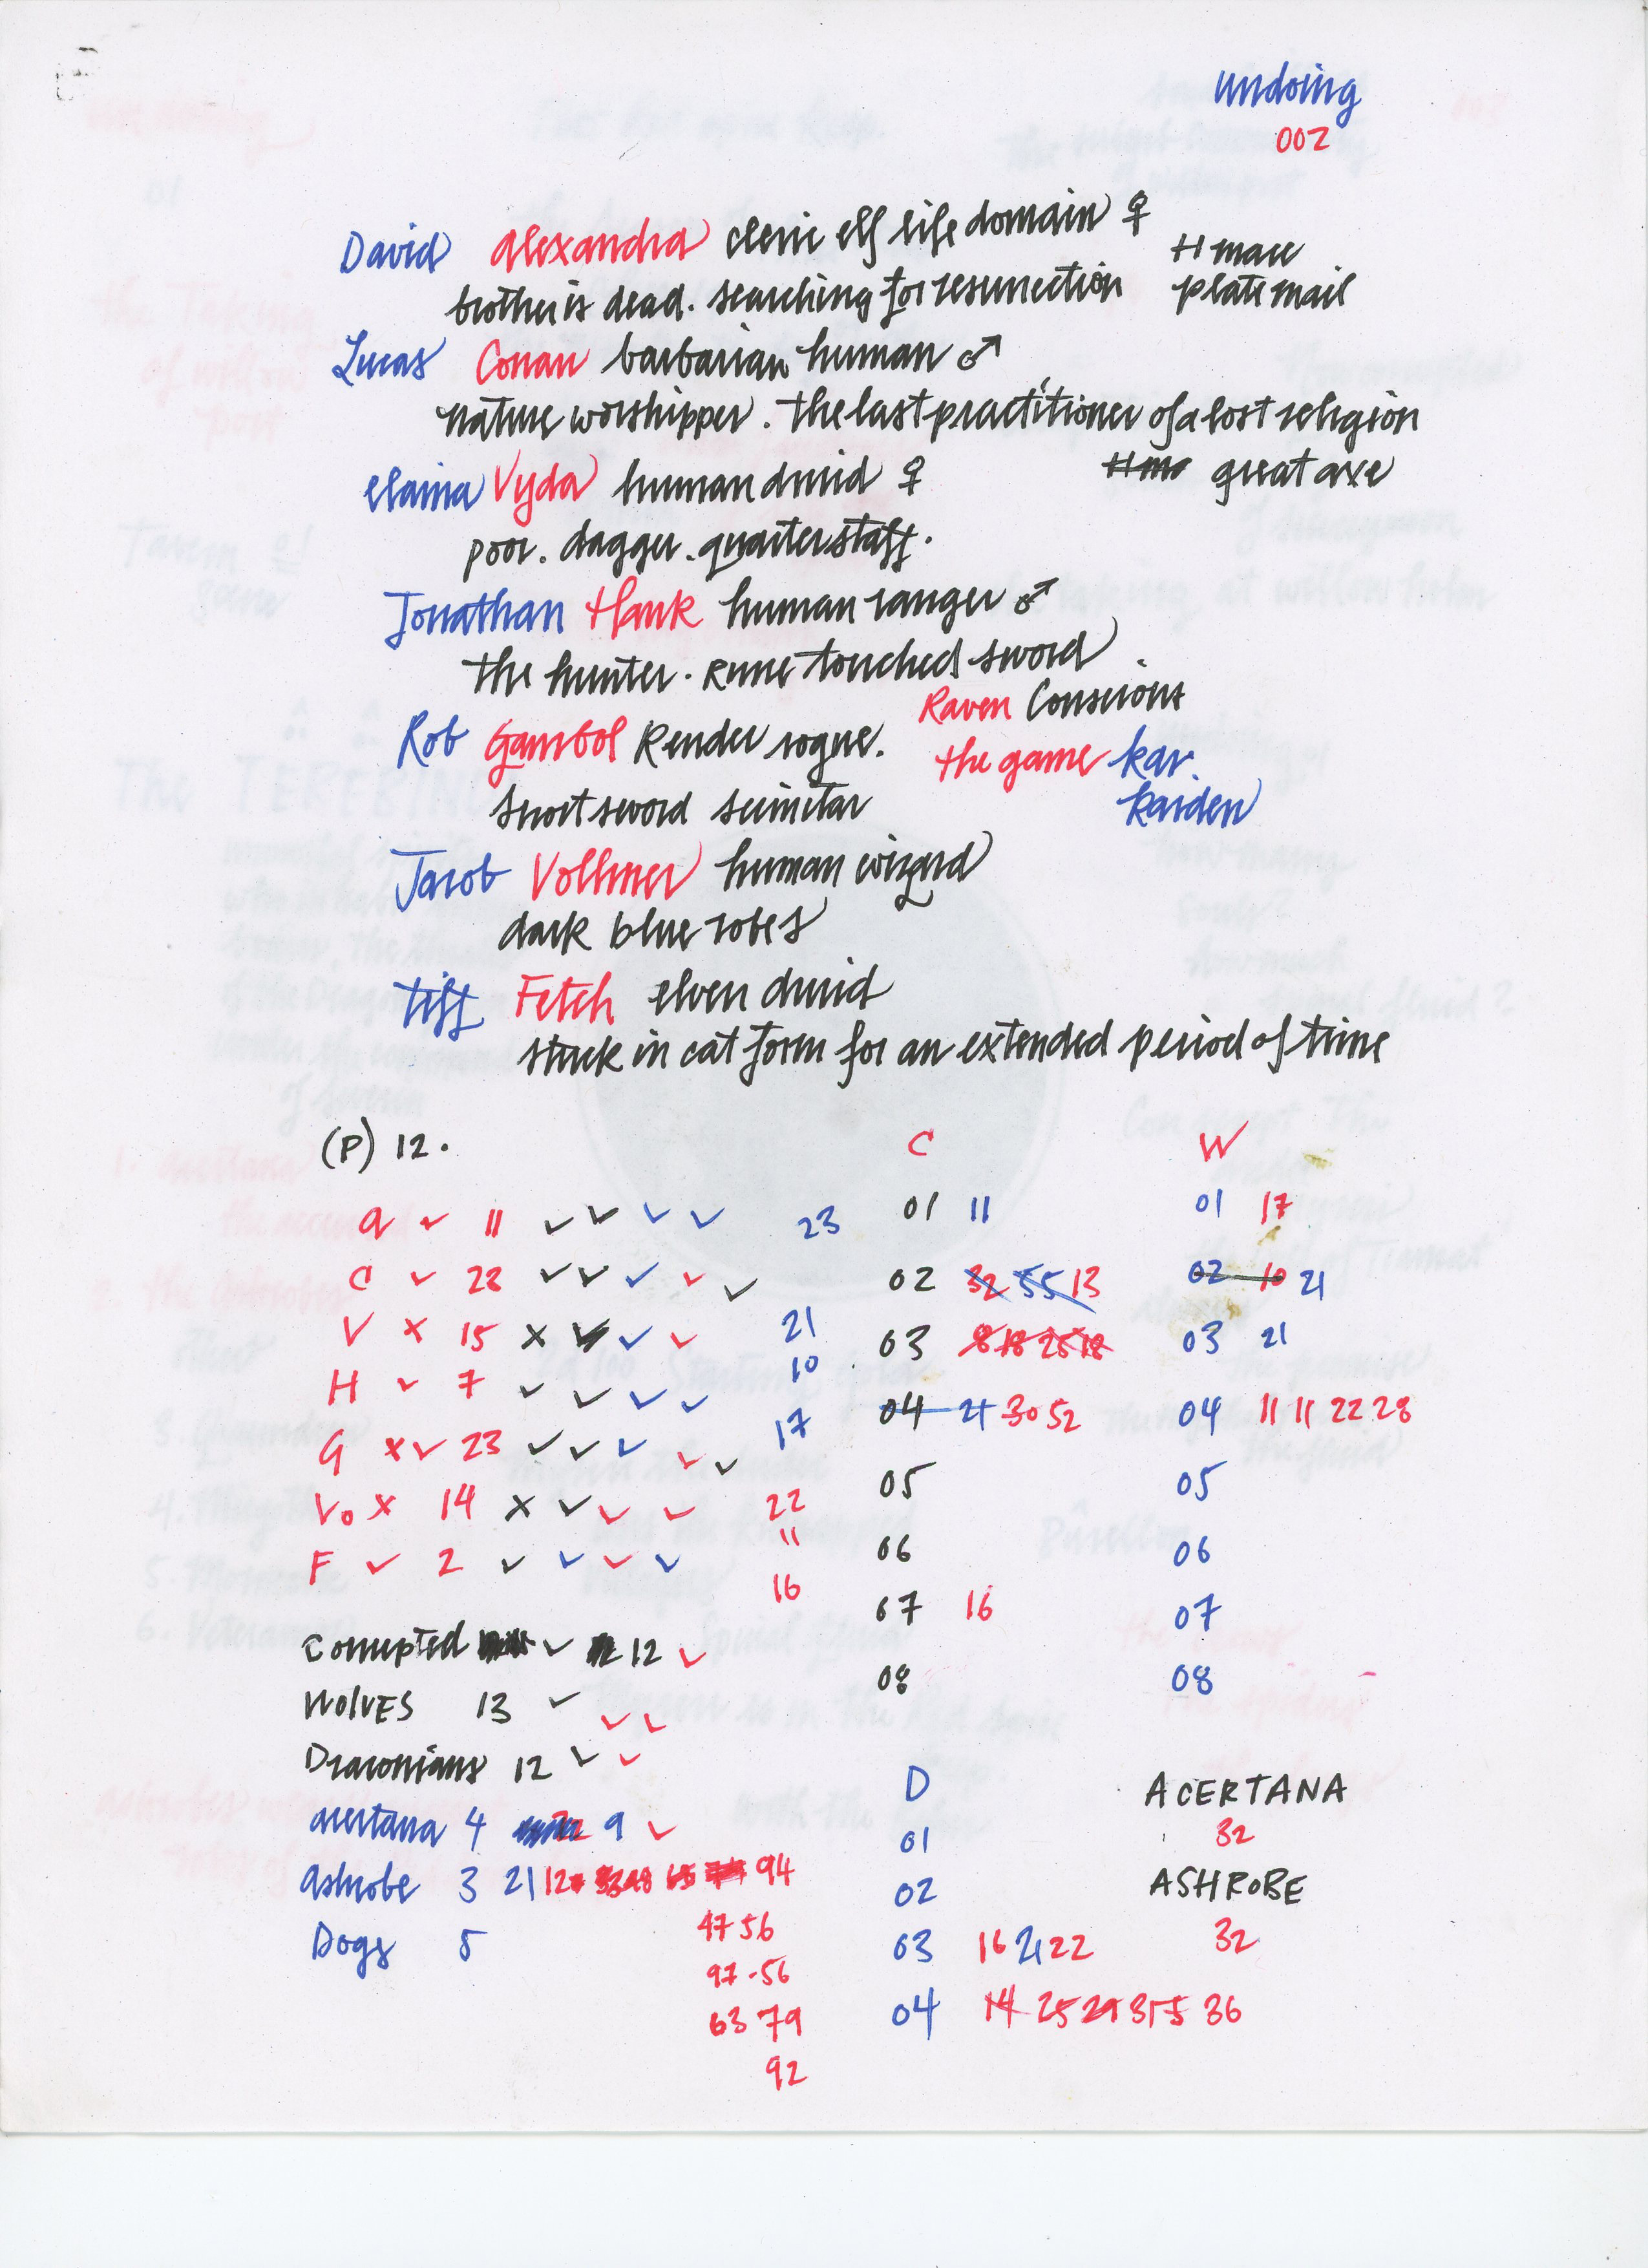 undoing
002
David Alexandra cleric elf life domain ♀
H mace
brother is dead. searching for resurrection plate mail
Lucas Conan barbarian human ♂
nature worshipper. the last practitioner of a lost religion
great axe
elaina Vyda human druid ♀
poor. dagger. quarterstaff.
Jonathan Hank human ranger ♂
the hunter. Rune touched sword
Raven Conscious
Rob Gambol Kender rogue. the game kar.
karden
short sword scimitar
Jacob Vollmer human wizard
dark blue robes
tiff Fetch elven druid
stuck in cat form for an extended period of time
(P) 12. C W
a ✓ 11 ✓ ✓ ✓ ✓ 23 01 11 01 17
C ✓ 28 ✓ ✓ ✓ ✓ ✓ 02 32 55 13 02 10 21
V x 15 x ✓ ✓ ✓ 21 03 8 18 25 18 03 21
H ✓ 7 ✓ ✓ ✓ ✓ 10 04 21 30 52 04 11 11 22 28
G x ✓ 23 ✓ ✓ ✓ ✓ ✓ 17 05 05
Vo x 14 x ✓ ✓ ✓ 22 06 06
11
F ✓ 2 ✓ ✓ ✓ ✓ 16 07 16 07
Corrupted ✓ 12 ✓ 08 08
Wolves 13 ✓ ✓ ✓
Draconians 12 ✓ ✓ D ACERTANA
acertana 4 9 ✓ 01 32
ashrobe 3 21 12 94 02 ASHROBE
47 56
Dogs 5 03 16 21 22 32
97-56
63 79 04 14 25 29 36
92